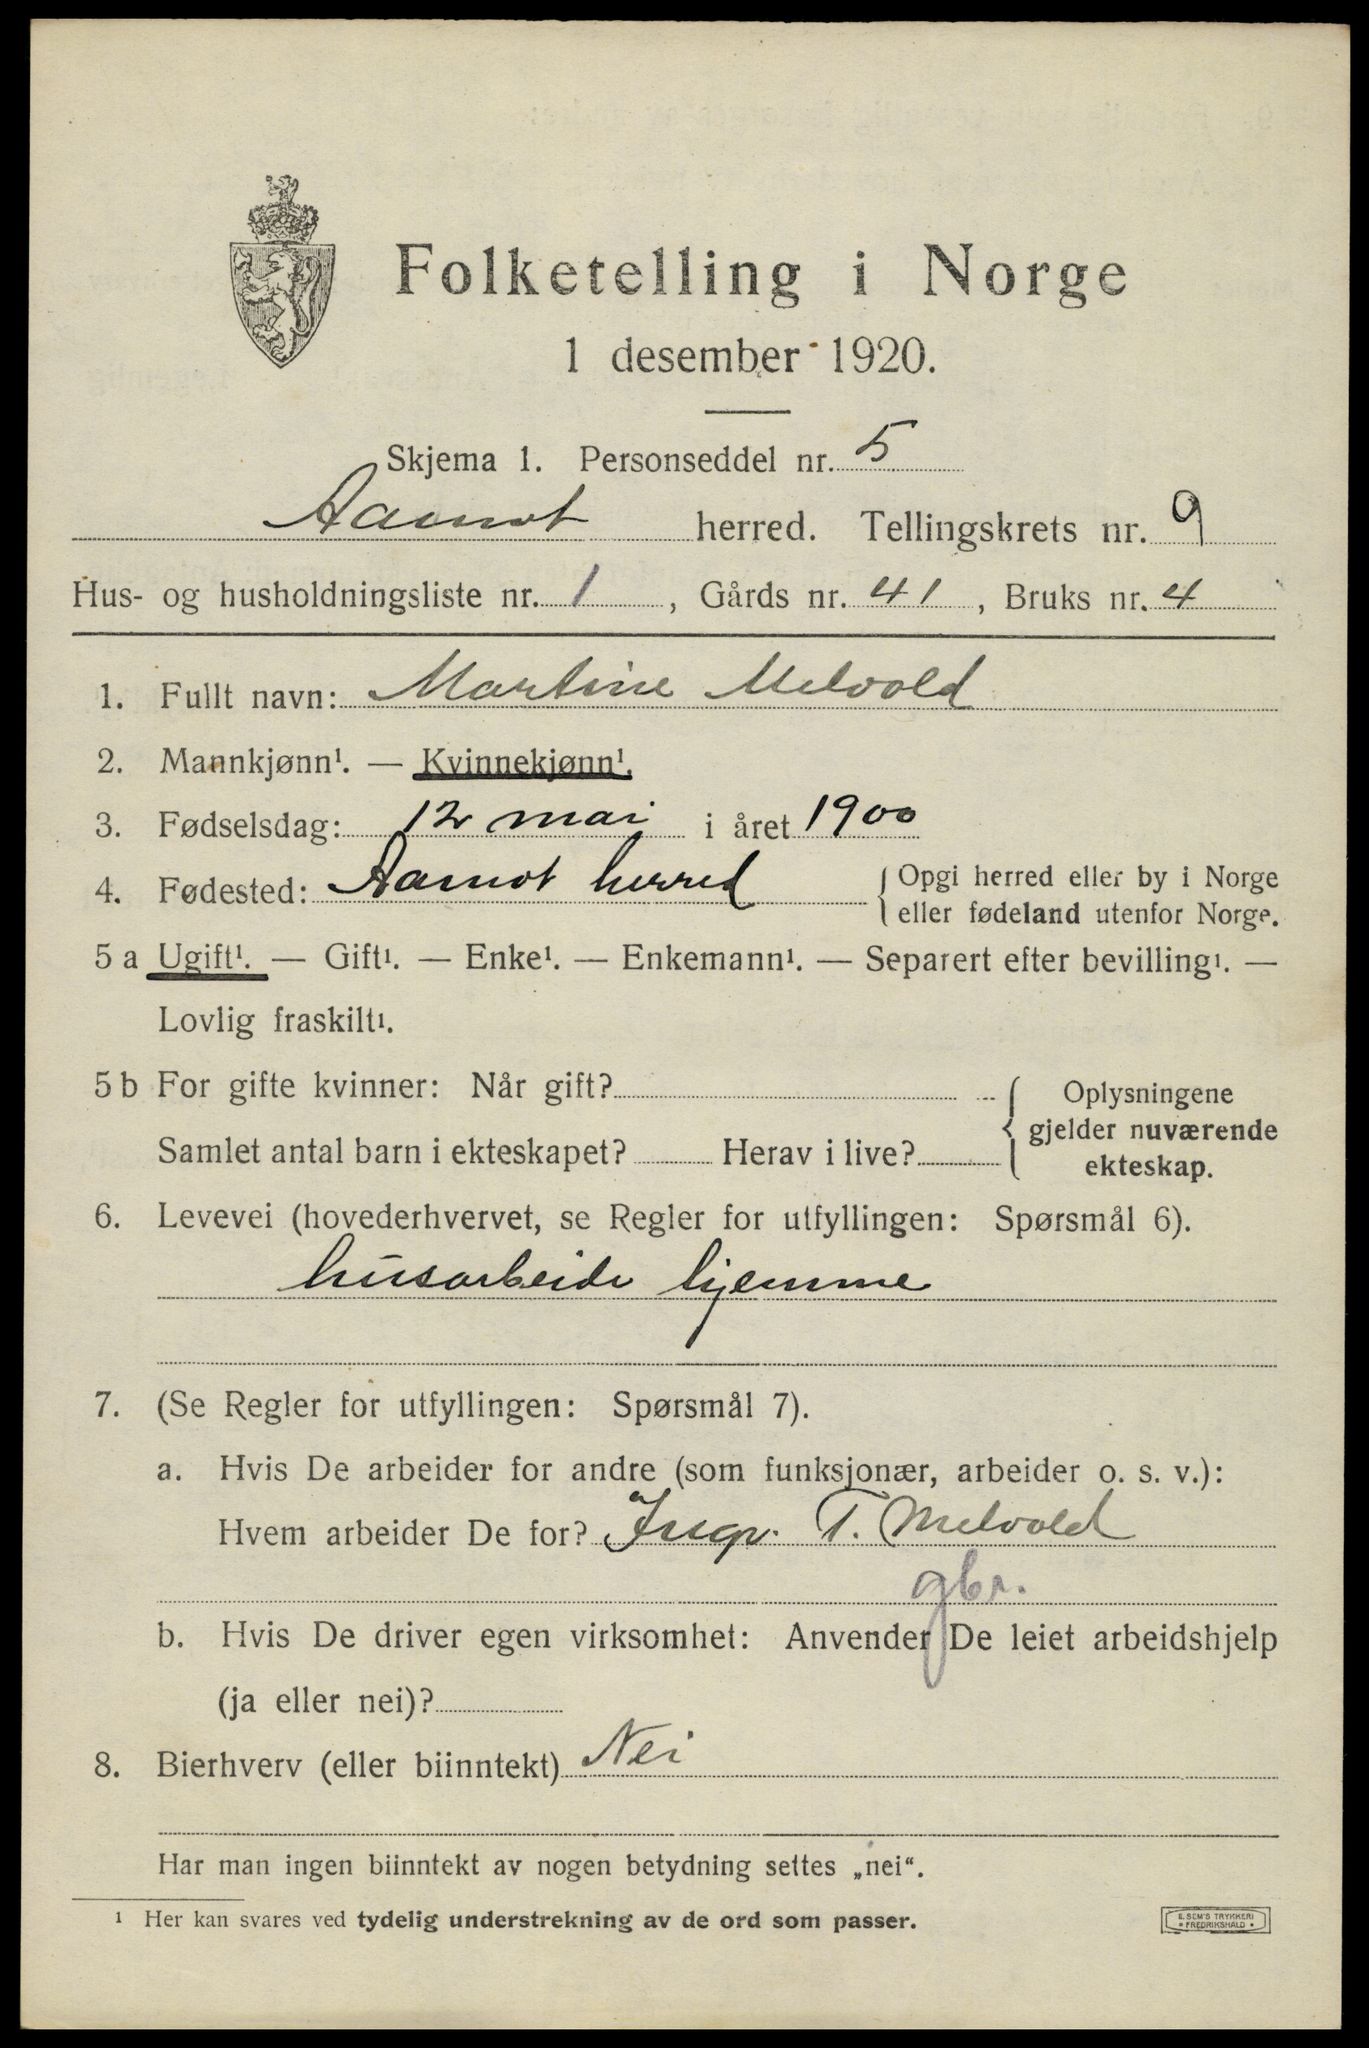 Folketelling i Norge
1 desember 1920.
Skjema 1. Personseddel nr. 5
Aamot herred. Tellingskrets nr. 9
Hus- og husholdningsliste nr. 1, Gårds nr. 41, Bruks nr. 4
1. Fullt navn: Martine Melvold
2. Mannkjønn¹. — Kvinnekjønn¹.
3. Fødselsdag: 12 mai i året 1900
4. Fødested: Aamot herred { Opgi herred eller by i Norge
eller fødeland utenfor Norge.
5 a Ugift¹. — Gift¹. — Enke¹. — Enkemann¹. — Separert efter bevilling¹. —
Lovlig fraskilt¹.
5 b For gifte kvinner: Når gift? { Oplysningene
gjelder nuværende
Samlet antal barn i ekteskapet? Herav i live? ekteskap.
6. Levevei (hovederhvervet, se Regler for utfyllingen: Spørsmål 6).
husarbeide hjemme
7. (Se Regler for utfyllingen: Spørsmål 7).
a. Hvis De arbeider for andre (som funksjonær, arbeider o. s. v.):
Hvem arbeider De for? Ingv. T. Melvold
gbr.
b. Hvis De driver egen virksomhet: Anvender De leiet arbeidshjelp
(ja eller nei)?
8. Bierhverv (eller biinntekt) Nei
Har man ingen biinntekt av nogen betydning settes „nei“.
¹ Her kan svares ved tydelig understrekning av de ord som passer.
E. SEM'S TRYKKERI
• FREDRIKSHALD •